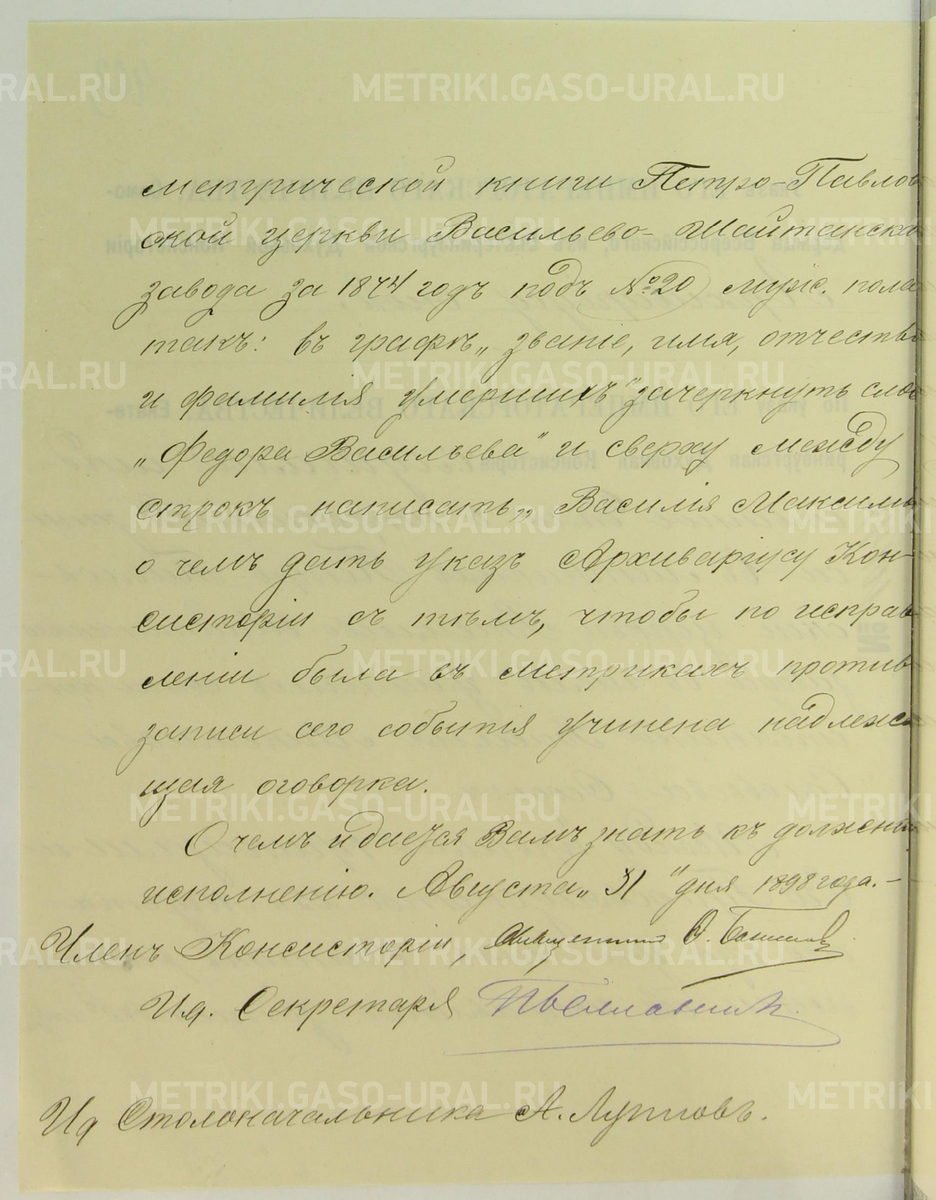 метрической книги Петро-Павлов
ской церкви Васильево-Шайтанска
завода за 1874 годъ подъ №20 муж. пола
такъ: въ графѣ „званіе, имя, отчество
и фамилія умершихъ" зачеркнуть сло
„Федора Васильева" и сверху между
строкъ написать „Василія Максимо
о чемъ дать указъ Архиваріусу Кон-
систоріи съ тѣмъ, чтобы по исправ
леніи была въ метрикахъ противъ
записи сего событія учинена надлежа
щая оговорка.
О чемъ и дается Вамъ знать къ должном
исполненію. Августа „31" дня 1898 года.-
Членъ Консисторіи, священникъ
И.д. Секретаря
Ид Столоначальника А. Луповъ.
METRIKI.GASO-URAL.RU